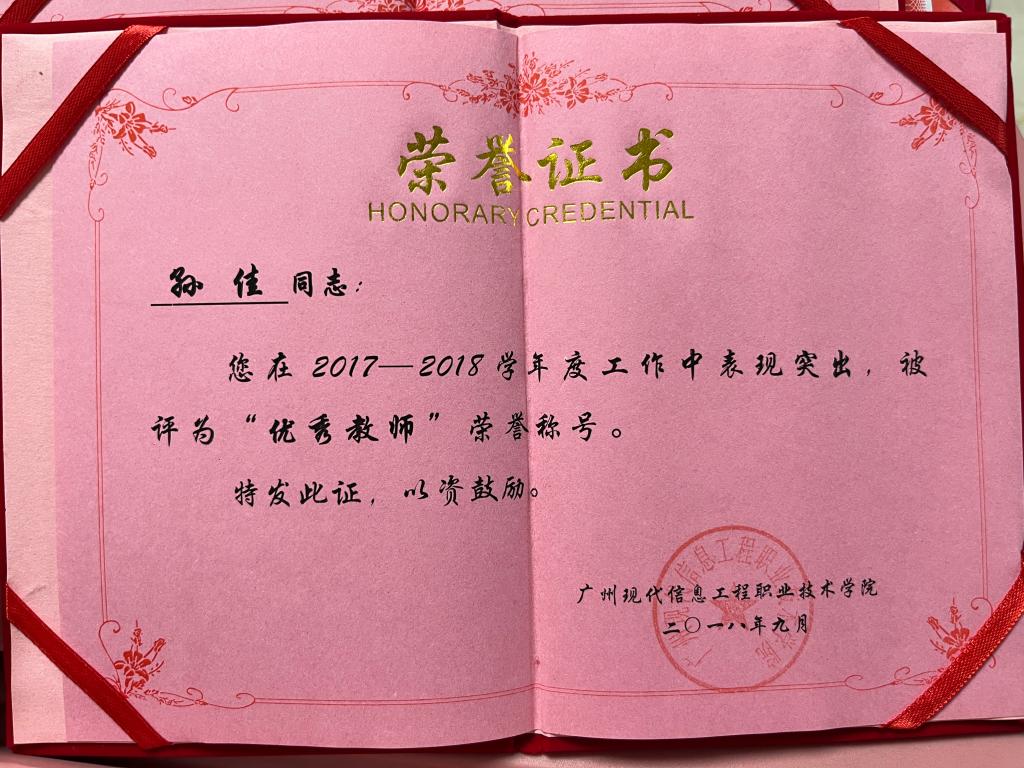 荣誉证书
HONORARY CREDENTIAL
孙佳同志：
您在2017—2018学年度工作中表现突出，被
评为“优秀教师”荣誉称号。
特发此证，以资鼓励。
广州现代信息工程职业技术学院
二〇一八年九月